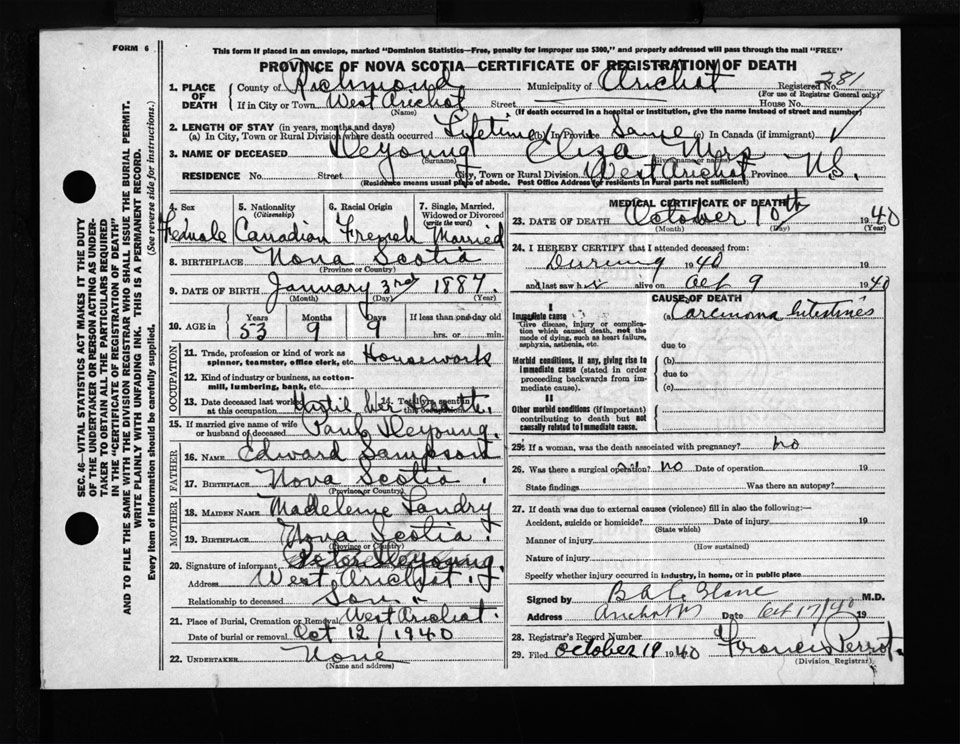 FORM 6
This form if placed in an envelope, marked "Dominion Statistics—Free, penalty for improper use $300," and properly addressed will pass through the mail "FREE"
PROVINCE OF NOVA SCOTIA—CERTIFICATE OF REGISTRATION OF DEATH
1. PLACE OF DEATH County of Richmond Municipality of Arichat Registered No. 281
(For use of Registrar General only)
If in City or Town West Arichat Street House No.
(Name) (If death occurred in a hospital or institution, give the name instead of street and number)
2. LENGTH OF STAY (in years, months and days)
(a) In City, Town or Rural Division where death occurred Lifetime (b) In Province Same (c) In Canada (if immigrant)
3. NAME OF DECEASED Deyoung Eliza Mrs
(Surname) (Given name or names)
RESIDENCE No. Street City, Town or Rural Division West Arichat Province N.S.
(Residence means usual place of abode. Post Office Address for residents in rural parts not sufficient)
SEC. 46—VITAL STATISTICS ACT MAKES IT THE DUTY
OF THE UNDERTAKER OR PERSON ACTING AS UNDER-
TAKER TO OBTAIN ALL THE PARTICULARS REQUIRED
IN THE "CERTIFICATE OF REGISTRATION OF DEATH"
AND TO FILE THE SAME WITH THE DIVISION REGISTRAR WHO SHALL ISSUE THE BURIAL PERMIT.
WRITE PLAINLY WITH UNFADING INK. THIS IS A PERMANENT RECORD.
Every item of information should be carefully supplied. (See reverse side for instructions.)
4. Sex 5. Nationality (Citizenship) 6. Racial Origin 7. Single, Married, Widowed or Divorced (write the word)
Female Canadian French Married
8. BIRTHPLACE Nova Scotia
(Province or Country)
9. DATE OF BIRTH January 3rd 1887
(Month) (Day) (Year)
10. AGE in Years Months Days If less than one day old
53 9 9 hrs. or min.
OCCUPATION
11. Trade, profession or kind of work as spinner, teamster, office clerk, etc. Housework
12. Kind of industry or business, as cotton-mill, lumbering, bank, etc.
13. Date deceased last worked at this occupation Until her Death. 24. Total years spent in this occupation
15. If married give name of wife or husband of deceased Paul Deyoung.
FATHER
16. NAME Edward Sampson
17. BIRTHPLACE Nova Scotia.
(Province or Country)
MOTHER
18. MAIDEN NAME Madeleine Landry
19. BIRTHPLACE Nova Scotia.
(Province or Country)
20. Signature of informant Deyoung.
Address West Arichat.
Relationship to deceased Son.
21. Place of Burial, Cremation or Removal West Arichat.
Date of burial or removal Oct 12/1940
22. UNDERTAKER None
(Name and address)
MEDICAL CERTIFICATE OF DEATH
23. DATE OF DEATH October 10th 1940
(Month) (Day) (Year)
24. I HEREBY CERTIFY that I attended deceased from:
During 1940
and last saw her alive on Oct 9 1940
CAUSE OF DEATH
I
Immediate cause (a) Carcinoma Intestines
Give disease, injury or complication which caused death, not the mode of dying, such as heart failure, asphyxia, asthenia, etc.
due to
Morbid conditions, if any, giving rise to immediate cause (stated in order proceeding backwards from immediate cause). (b)
due to
(c)
II
Other morbid conditions (if important) contributing to death but not causally related to immediate cause.
25. If a woman, was the death associated with pregnancy? no
26. Was there a surgical operation? no Date of operation 19
State findings Was there an autopsy?
27. If death was due to external causes (violence) fill in also the following:—
Accident, suicide or homicide? Date of injury 19
(State which)
Manner of injury
(How sustained)
Nature of injury
Specify whether injury occurred in industry, in home, or in public place
Signed by M.D.
Address Arichat NS Date Oct 17/40 19
28. Registrar's Record Number
29. Filed October 19 1940 Francis Perrot
(Division Registrar)